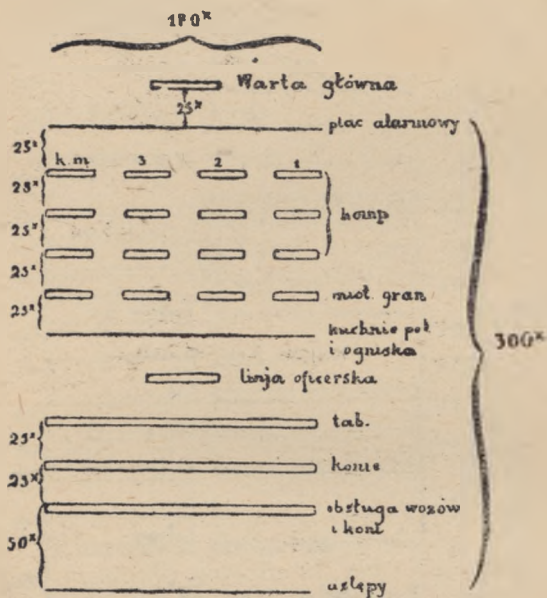 180ˣ
Warta główna
25ˣ
plac alarmowy
25ˣ
k.m 3 2 1
25ˣ
komp
25ˣ
25ˣ
miot. gran
25ˣ
kuchnie pol.
i ogniska
300ˣ
linja oficerska
tab.
25ˣ
konie
25ˣ
obsługa wozów
i koni
50ˣ
ustępy